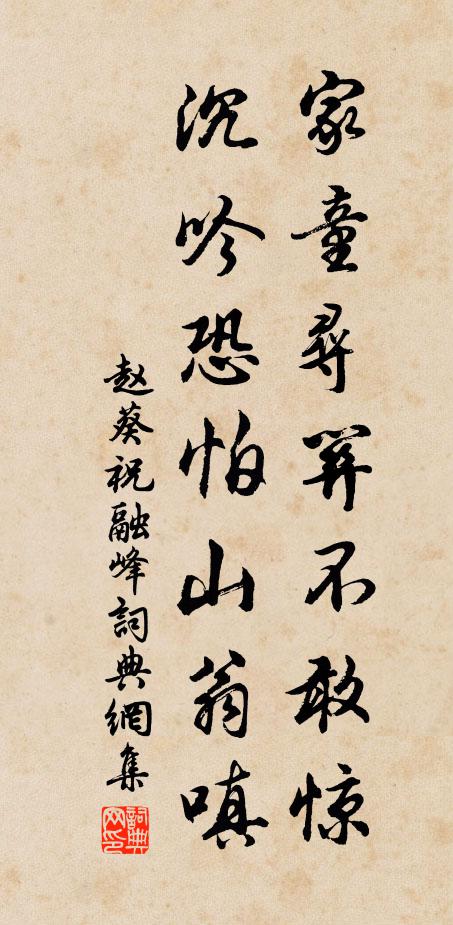 家童尋不敢惊
沉吟恐怕山翁嗔
赵葵祝融峰詞典網集
詞典网印